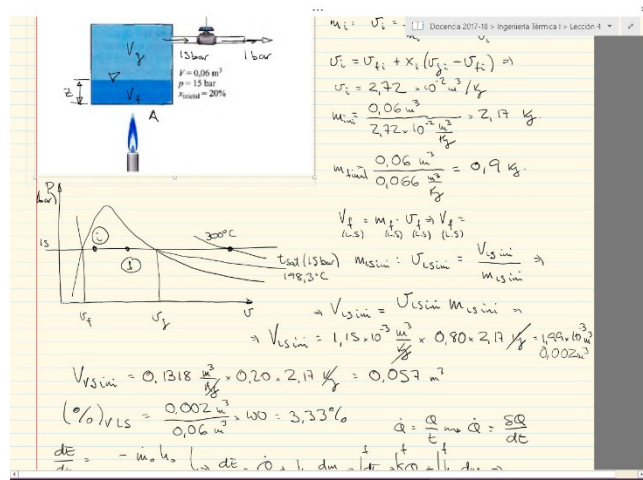 Docencia 2017-18 > Ingeniería Térmica I > Lección 4
V_g
V_f
z
A
15 bar
1 bar
V = 0,06 m³
p = 15 bar
x_inicial = 20%
v_i = v_fi + x_i (v_gi - v_fi) ⇒
v_i = 2,72 × 10⁻² m³/kg
m_ini = 0,06 m³ / 2,72 × 10⁻² m³/kg = 2,17 kg.
m_final = 0,06 m³ / 0,066 m³/kg = 0,9 kg.
V_f (L.S) = m_f (L.S) · v_f (L.S) ⇒ V_f (L.S) =
P (bar)
15
i
1
300°C
t_sat (15 bar)
198,3°C
v_f
v_g
v
m_LSini : v_LSini = V_LSini / m_LSini ⇒
⇒ V_LSini = v_LSini m_LSini ⇒
⇒ V_LSini = 1,15 × 10⁻³ m³/kg × 0,80 × 2,17 kg = 1,99 × 10⁻³ m³
0,002 m³
V_VSini = 0,1318 m³/kg × 0,20 × 2,17 kg = 0,057 m³
(%)_VLS = 0,002 m³ / 0,06 m³ × 100 = 3,33%
Q̇ = Q/t ⇒ Q̇ = δQ/dt